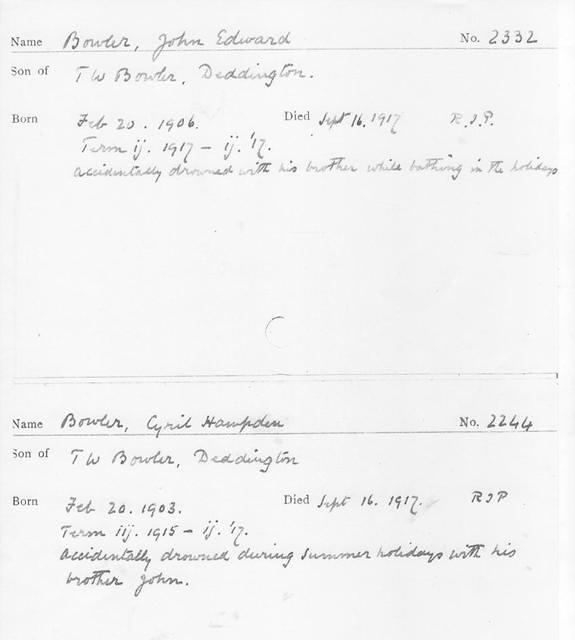 Name Bowler, John Edward No. 2332
Son of T W Bowler, Deddington.
Born Feb 20. 1906. Died Sept 16. 1917 R.I.P.
Term ij. 1917 – ij. '17.
accidentally drowned with his brother while bathing in the holidays
Name Bowler, Cyril Hampden No. 2244
Son of T W Bowler, Deddington
Born Feb 20. 1903. Died Sept 16. 1917. RIP
Term iij. 1915 – ij. '17.
accidentally drowned during Summer holidays with his
brother John.